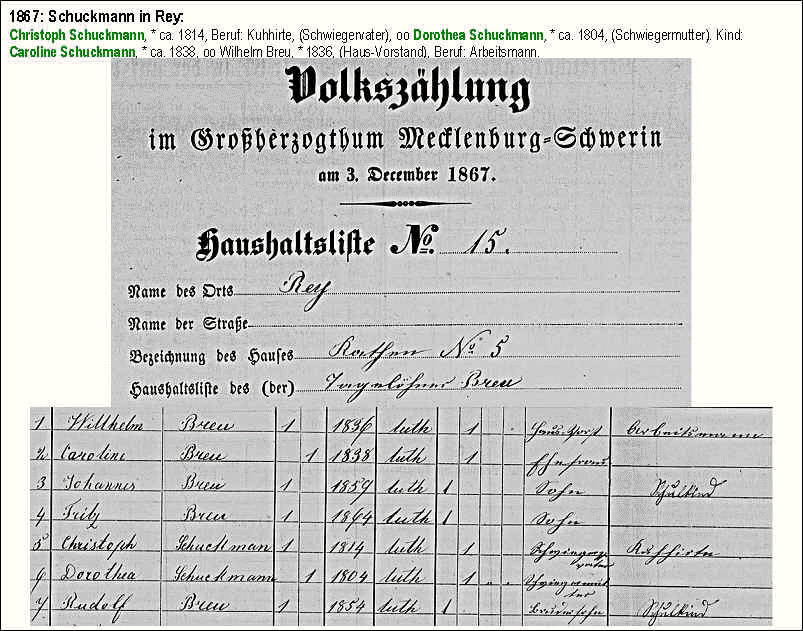 1867: Schuckmann in Rey:
Christoph Schuckmann, * ca. 1814, Beruf: Kuhhirte, (Schwiegervater), oo Dorothea Schuckmann, * ca. 1804, (Schwiegermutter). Kind:
Caroline Schuckmann, * ca. 1838, oo Wilhelm Breu, * 1836, (Haus-Vorstand), Beruf: Arbeitsmann.
Volkszählung
im Großherzogthum Mecklenburg-Schwerin
am 3. December 1867.
Haushaltsliste No. 15.
Name des Orts Rey
Name der Straße
Bezeichnung des Hauses Kathen No 5
Haushaltsliste des (der) Tagelöhner Breu
1 Willhelm Breu 1 1836 luth 1 Haus-Vorst Arbeitsmann
2 Caroline Breu 1 1838 luth 1 Ehefrau
3 Johannes Breu 1 1859 luth 1 Sohn Schulkind
4 Fritz Breu 1 1864 luth 1 Sohn
5 Christoph Schuckman 1 1814 luth 1 Schwiegervater Kuhhirte
6 Dorothea Schuckmann 1 1804 luth 1 Schwiegermutter
7 Rudolf Breu 1 1854 luth 1 Schulkind